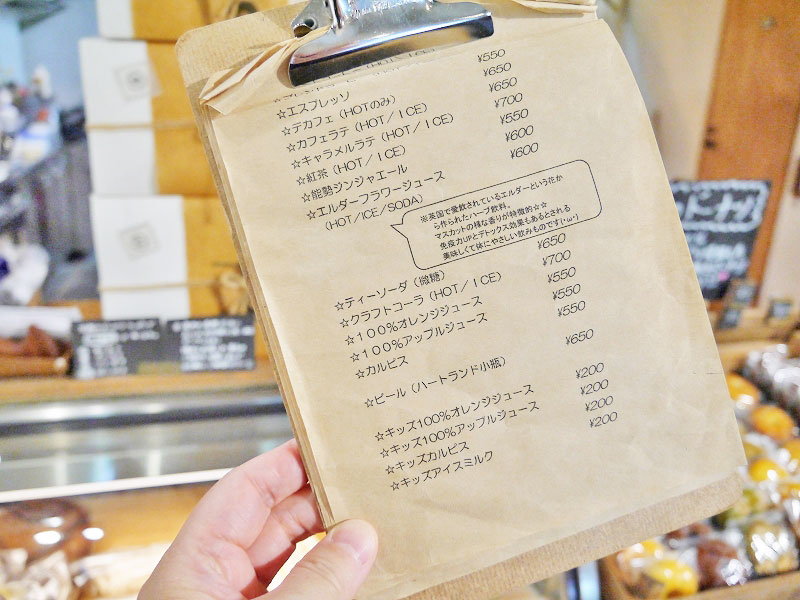 ☆エスプレッソ ¥550
☆デカフェ（HOTのみ） ¥650
☆カフェラテ（HOT／ICE） ¥650
☆キャラメルラテ（HOT／ICE） ¥700
☆紅茶（HOT／ICE） ¥550
☆能勢ジンジャエール ¥600
☆エルダーフラワージュース ¥600
（HOT/ICE/SODA）
※英国で愛飲されているエルダーという花か
ら作られたハーブ飲料。
マスカットの様な香りが特徴的☆☆
免疫力UPとデトックス効果もあるとされる
美味しくて体にやさしい飲みものです(・ω・)
☆ティーソーダ（微糖） ¥650
☆クラフトコーラ（HOT／ICE） ¥700
☆１００％オレンジジュース ¥550
☆１００％アップルジュース ¥550
☆カルピス ¥550
☆ビール（ハートランド小瓶） ¥650
☆キッズ100％オレンジジュース ¥200
☆キッズ100％アップルジュース ¥200
☆キッズカルピス ¥200
☆キッズアイスミルク ¥200
ドーナツ